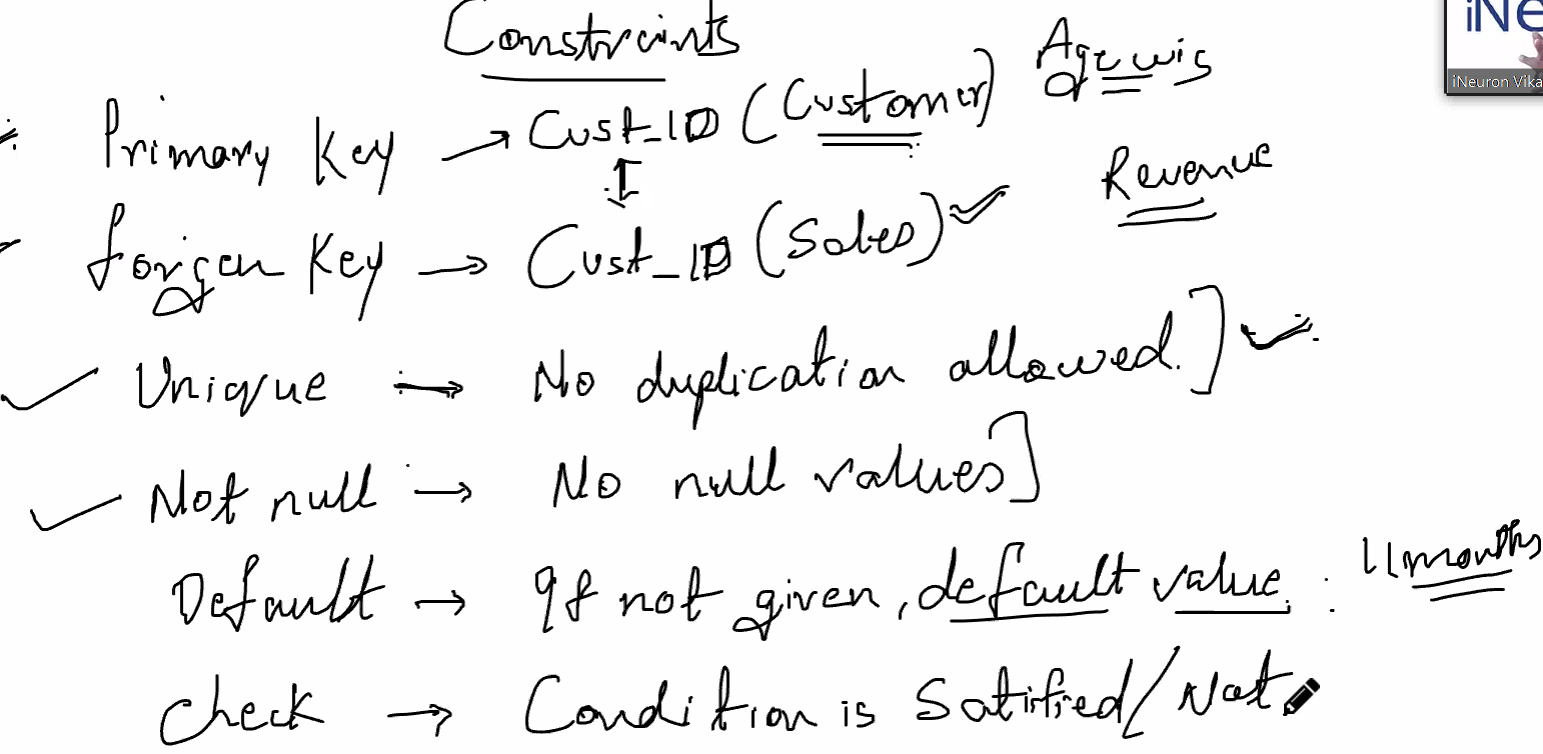 Constraints
Primary Key → Cust_ID (Customer) Age wis
Revenue
forigen Key → Cust_ID (Sales)
Unique → No duplication allowed.]
Not null → No null values]
Default → If not given, default value. 11 months
Check → Condition is Satified/Not
iNe
iNeuron Vika